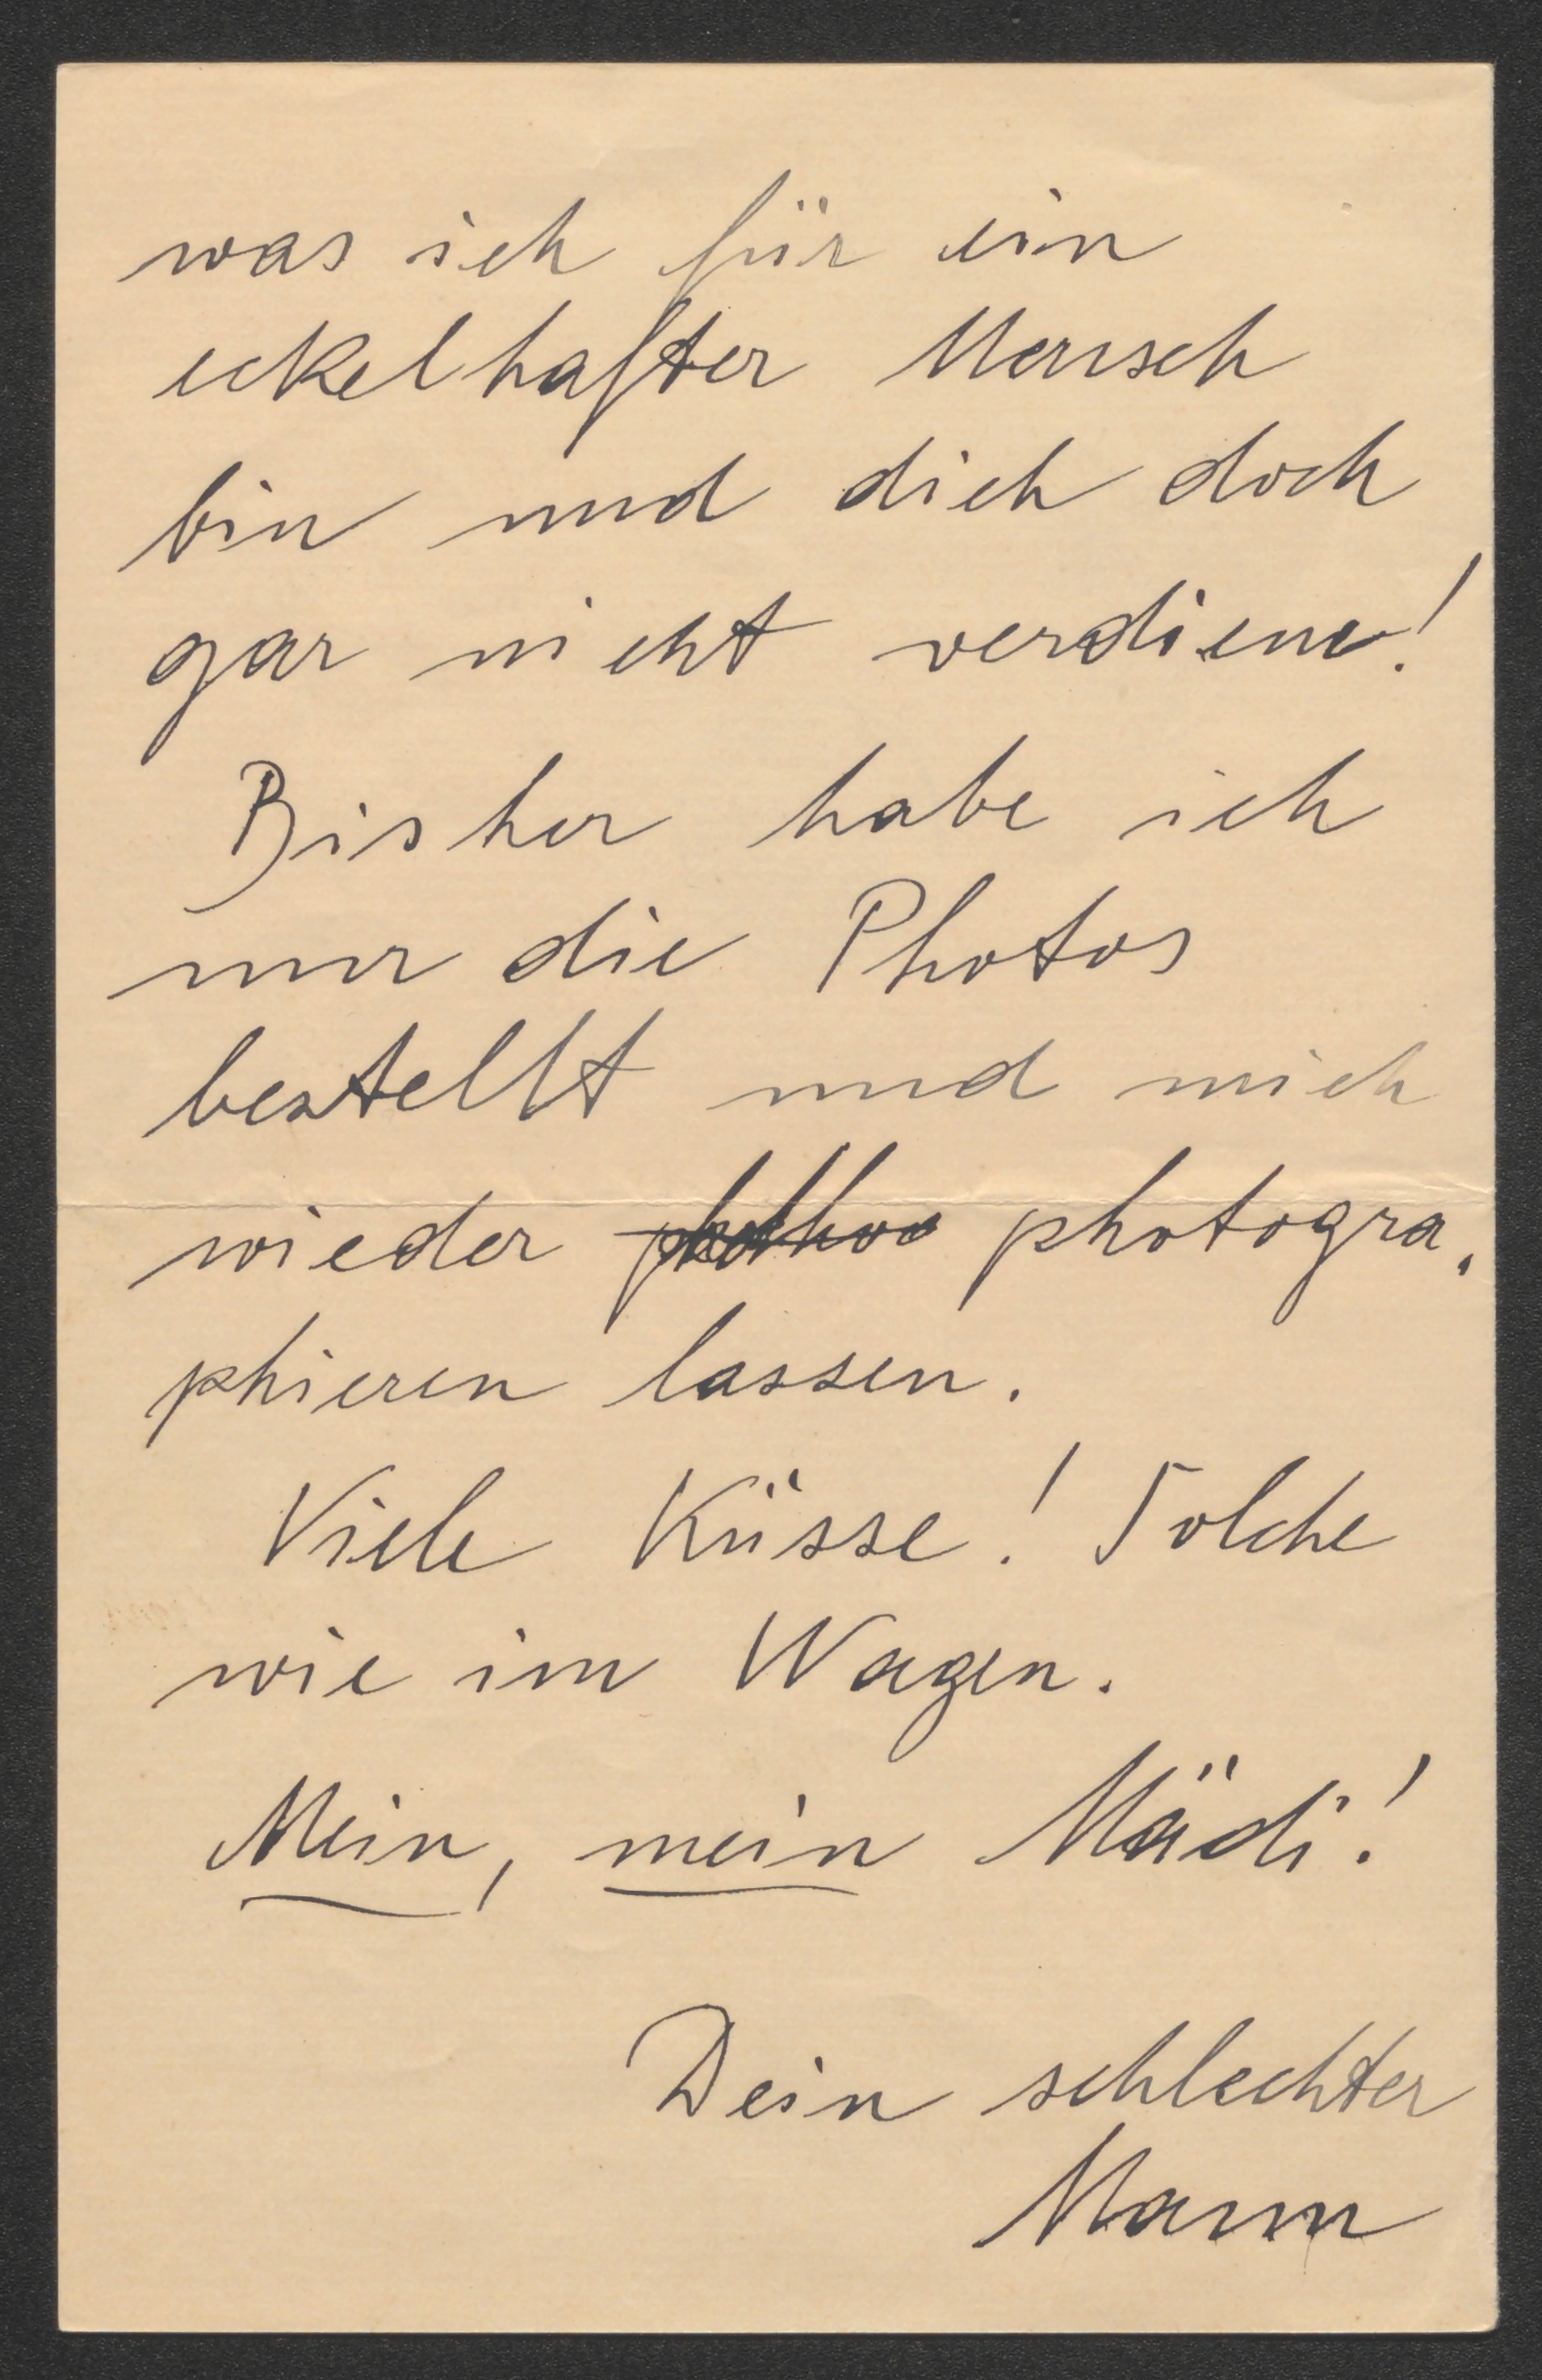 was ich für ein
eckelhafter Mensch
bin und dich doch
gar nicht verdiene!
Bisher habe ich
nur die Photos
bestellt und mich
wieder photogra-
phieren lassen.
Viele Küsse! Solche
wie im Wagen.
Mein, mein Mädi!
Dein schlechter
Mann